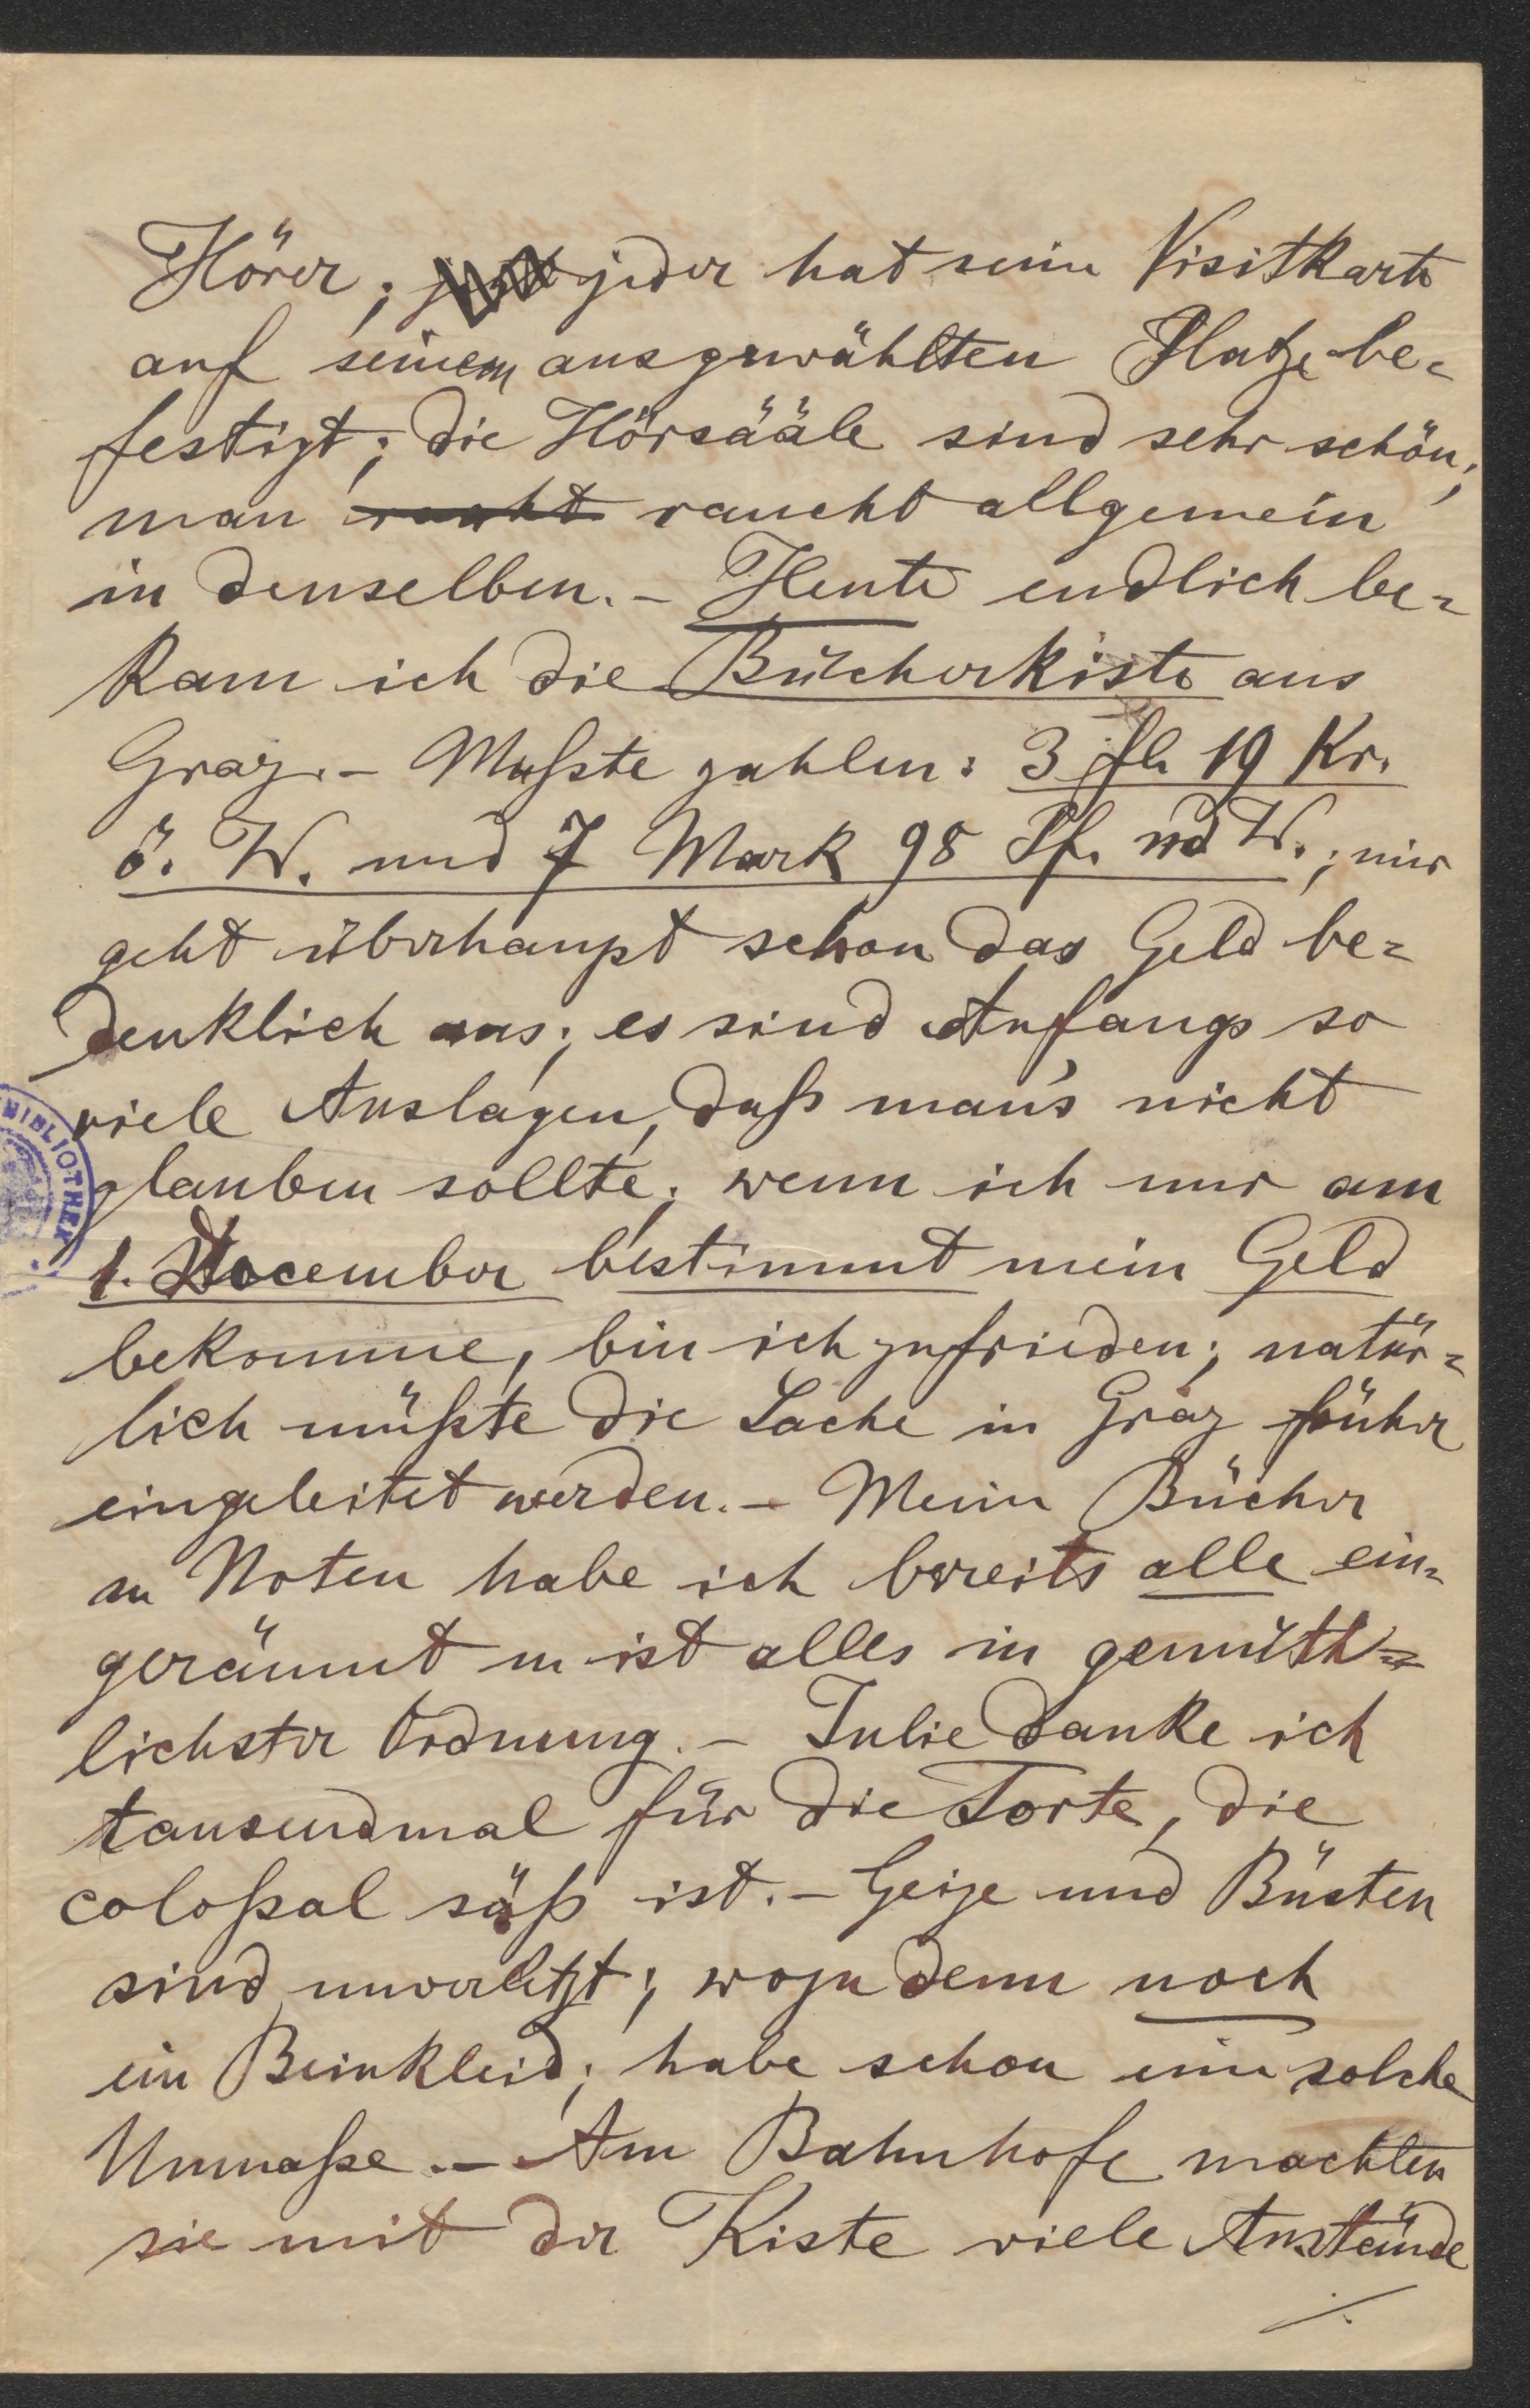 Hörer; jeder hat seine Visitkarte
auf seinem ausgewählten Platze be=
festigt; die Hörsääle sind sehr schön;
man raucht allgemein
in denselben. – Heute endlich be=
kam ich die Bücherkiste aus
Graz. – Mußte zahlen: 3 fl. 19 Kr.
ö. W. und 7 Mark 98 Pf. nd W.; mir
geht überhaupt schon das Geld be=
denklich aus; es sind Anfangs so
viele Auslagen, daß man's nicht
glauben sollte; wenn ich nur am
1. December bestimmt mein Geld
bekomme, bin ich zufrieden; natür=
lich müßte die Sache in Graz früher
eingeleitet werden. – Meine Bücher
u Noten habe ich bereits alle ein=
geräumt u ist alles in gemüth=
lichster Ordnung. – Julie danke ich
tausendmal für die Torte, die
coloßal süß ist. – Geige und Büsten
sind unverletzt; wozu denn noch
ein Beinkleid; habe schon eine solche
Unmaße. – Am Bahnhofe machten
sie mit der Kiste viele Anstände
./.
BIBLIOTHEK